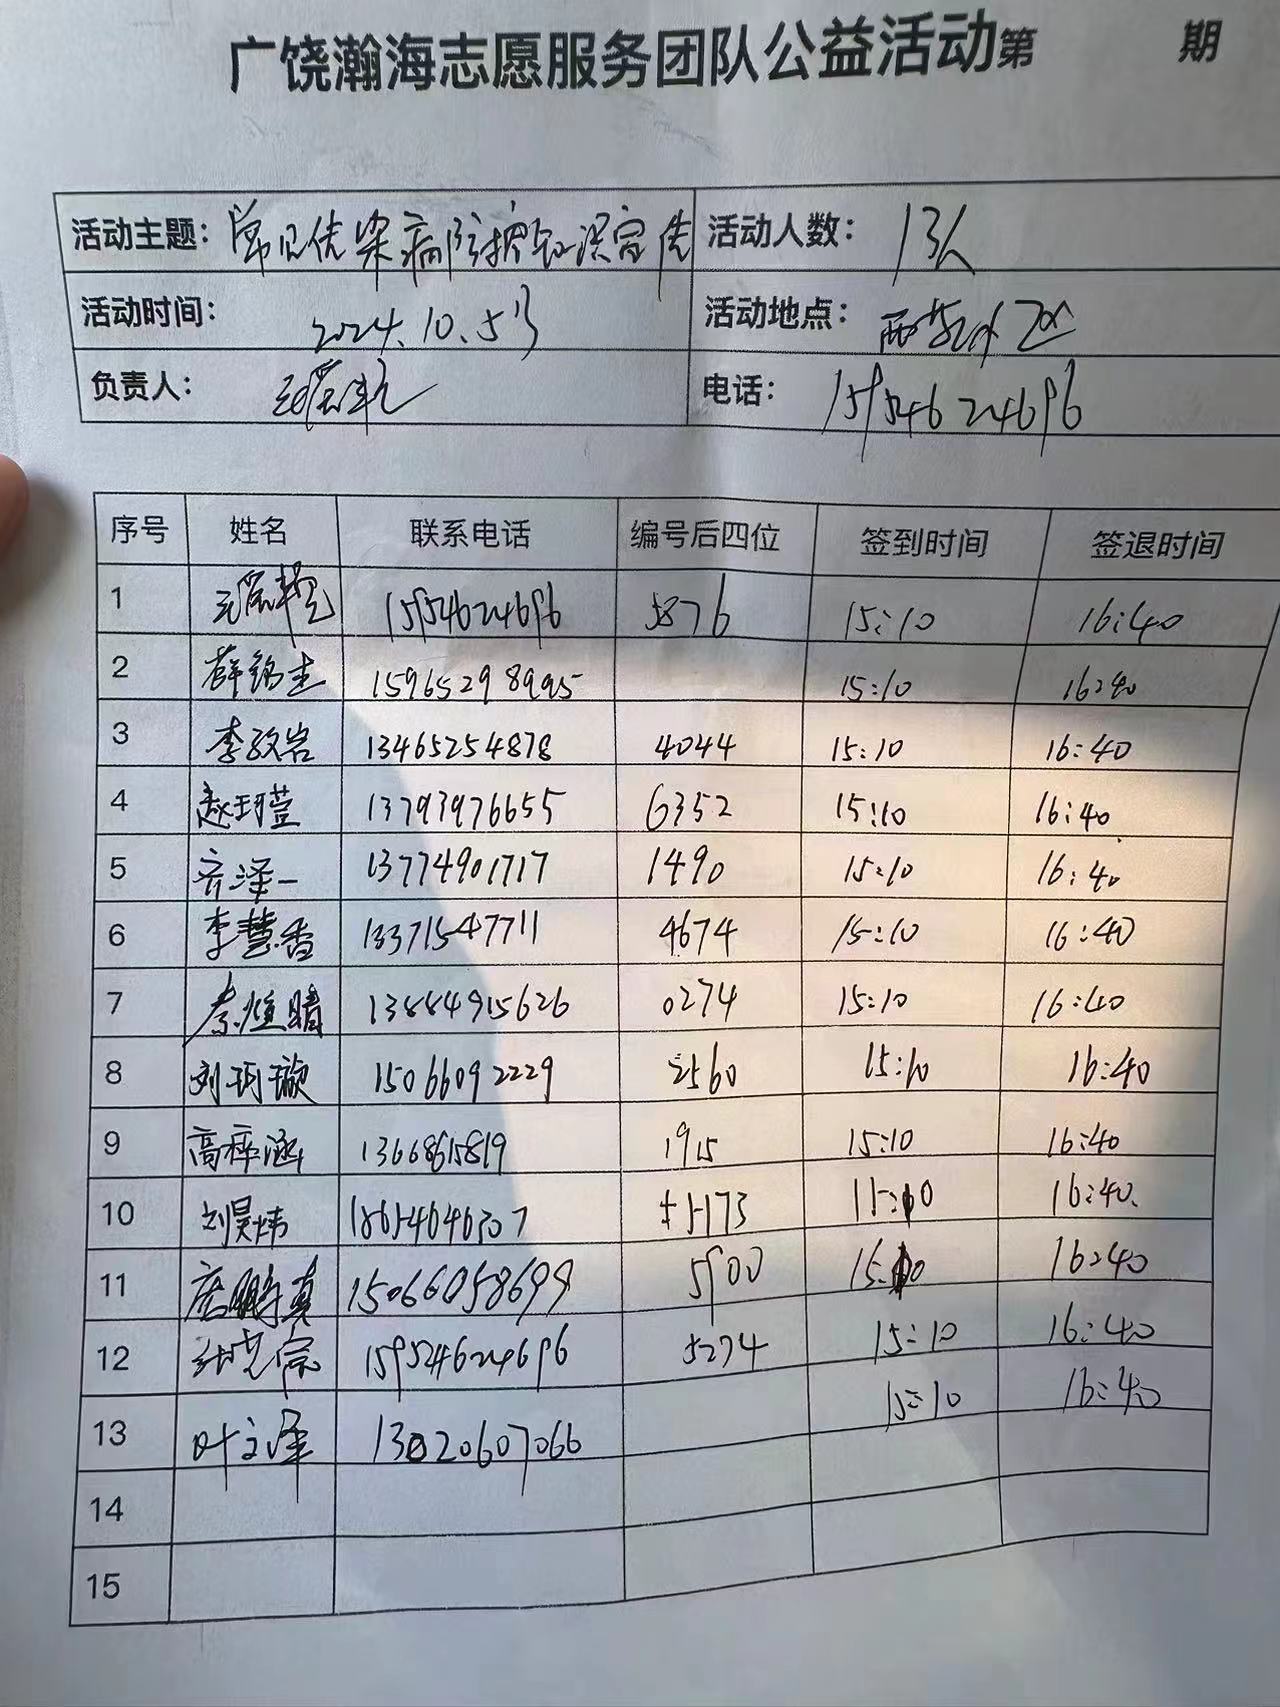 广饶瀚海志愿服务团队公益活动第 期
活动主题：常见传染病防护知识宣传 活动人数：13人
活动时间：2024.10.5号 活动地点：
负责人： 电话：15954624696
序号 姓名 联系电话 编号后四位 签到时间 签退时间
1 15954624696 5876 15:10 16:40
2 薛铭圭 15965298995 15:10 16:40
3 李政岩 13465254878 4044 15:10 16:40
4 赵玥萱 13793976655 6352 15:10 16:40
5 齐泽一 13774901717 1490 15:10 16:40
6 李慧香 13371547711 4674 15:10 16:40
7 秦煊晴 13884915626 0274 15:10 16:40
8 刘玥漩 15066092229 2560 15:10 16:40
9 高梓涵 13668615819 1915 15:10 16:40
10 刘昊炜 18654646307 5173 15:10 16:40
11 唐鹏真 15066058699 5900 15:10 16:40
12 15954624696 5274 15:10 16:40
13 叶文泽 13020607066 15:10 16:40
14
15